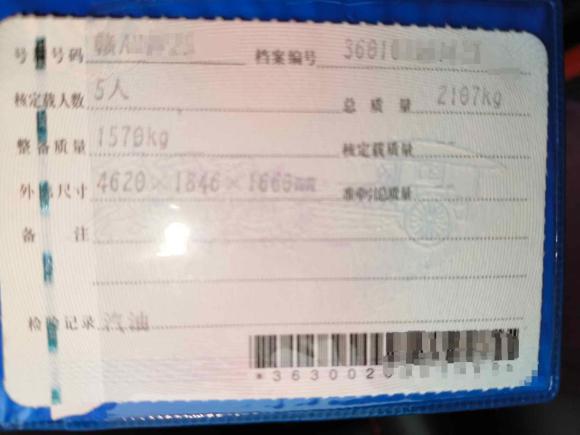 号牌号码 赣A 档案编号 36010
核定载人数 5人 总质量 2107kg
整备质量 1570kg 核定载质量
外廓尺寸 4620×1846×1660mm 准牵引总质量
备注
检验记录 汽油
*3630020